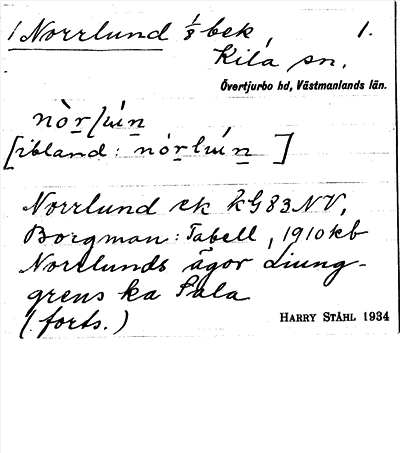 1 Norrlund 1/8 bek, 1.
Kila sn.
Övertjurbo hd, Västmanlands län.
nòr/lu̇́n
[ibland: nórlu̇́n]
Norrlund ek kG83NV,
Borgman: Tabell, 1910kb
Norrlunds ägor Ljung-
grens ka Sala
(forts.)
HARRY STÅHL 1934